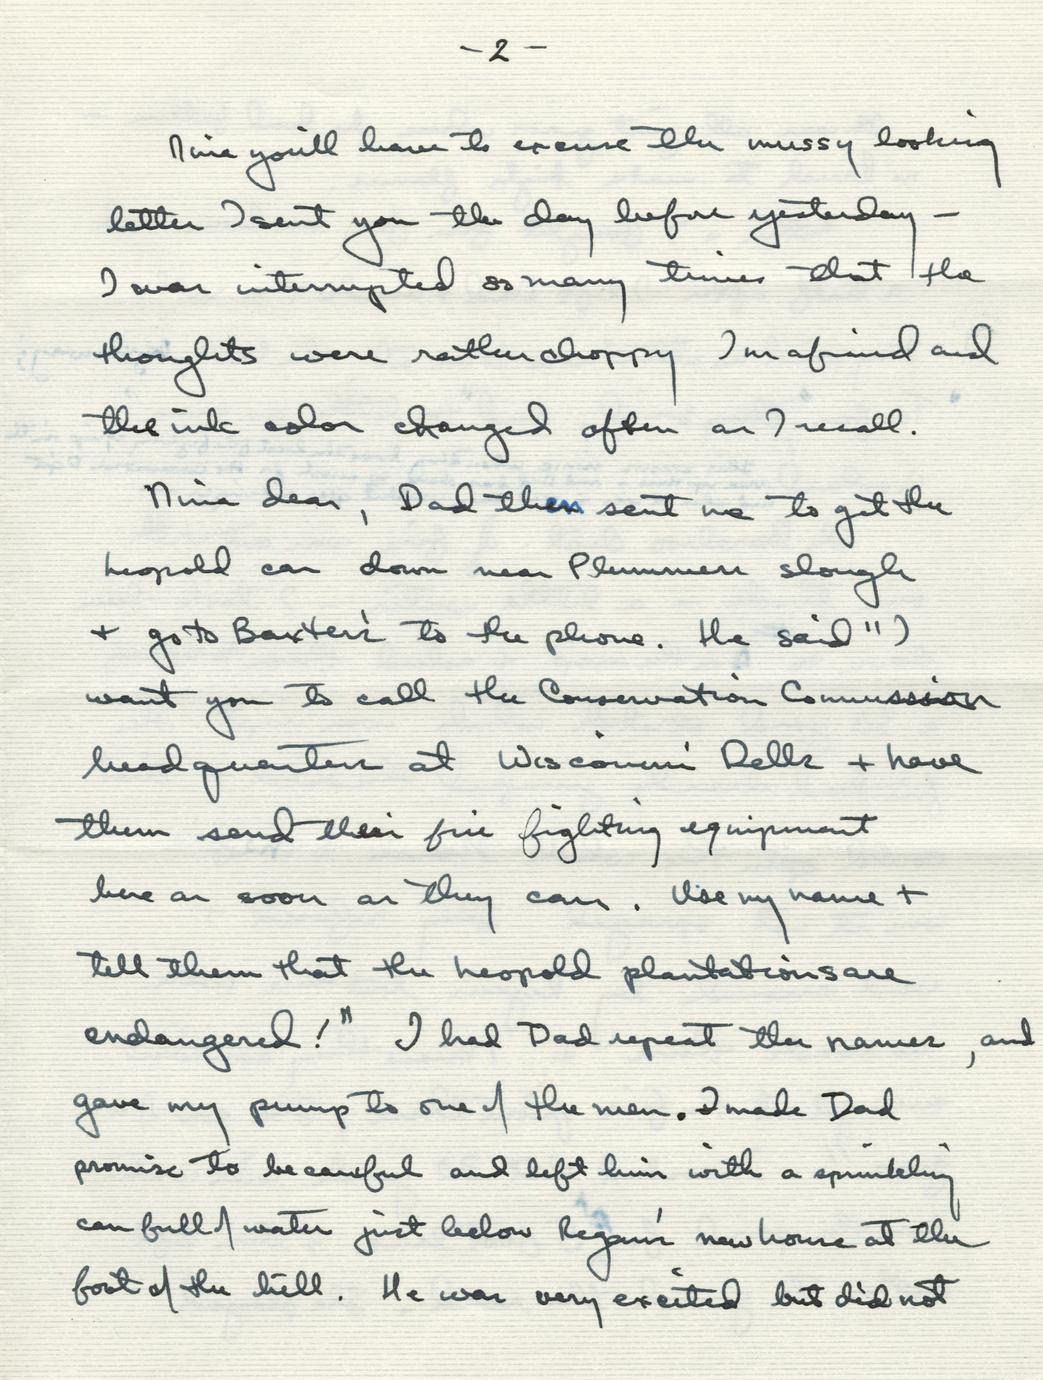 - 2 -
Nina you'll have to excuse the mussy looking
letter I sent you the day before yesterday -
I was interrupted so many times that the
thoughts were rather choppy I'm afraid and
the ink color changed often as I recall.
Nina dear, Dad then sent me to get the
Leopold car down near Plummers slough
+ go to Baxter's to the phone. He said "I
want you to call the Conservation Commission
headquarters at Wisconsin Dells + have
them send their fire fighting equipment
here as soon as they can. Use my name +
tell them that the Leopold plantations are
endangered!" I had Dad repeat the names, and
gave my pump to one of the men. I made Dad
promise to be careful and left him with a sprinkling
can full of water just below Regan's new house at the
foot of the hill. He was very excited but did not